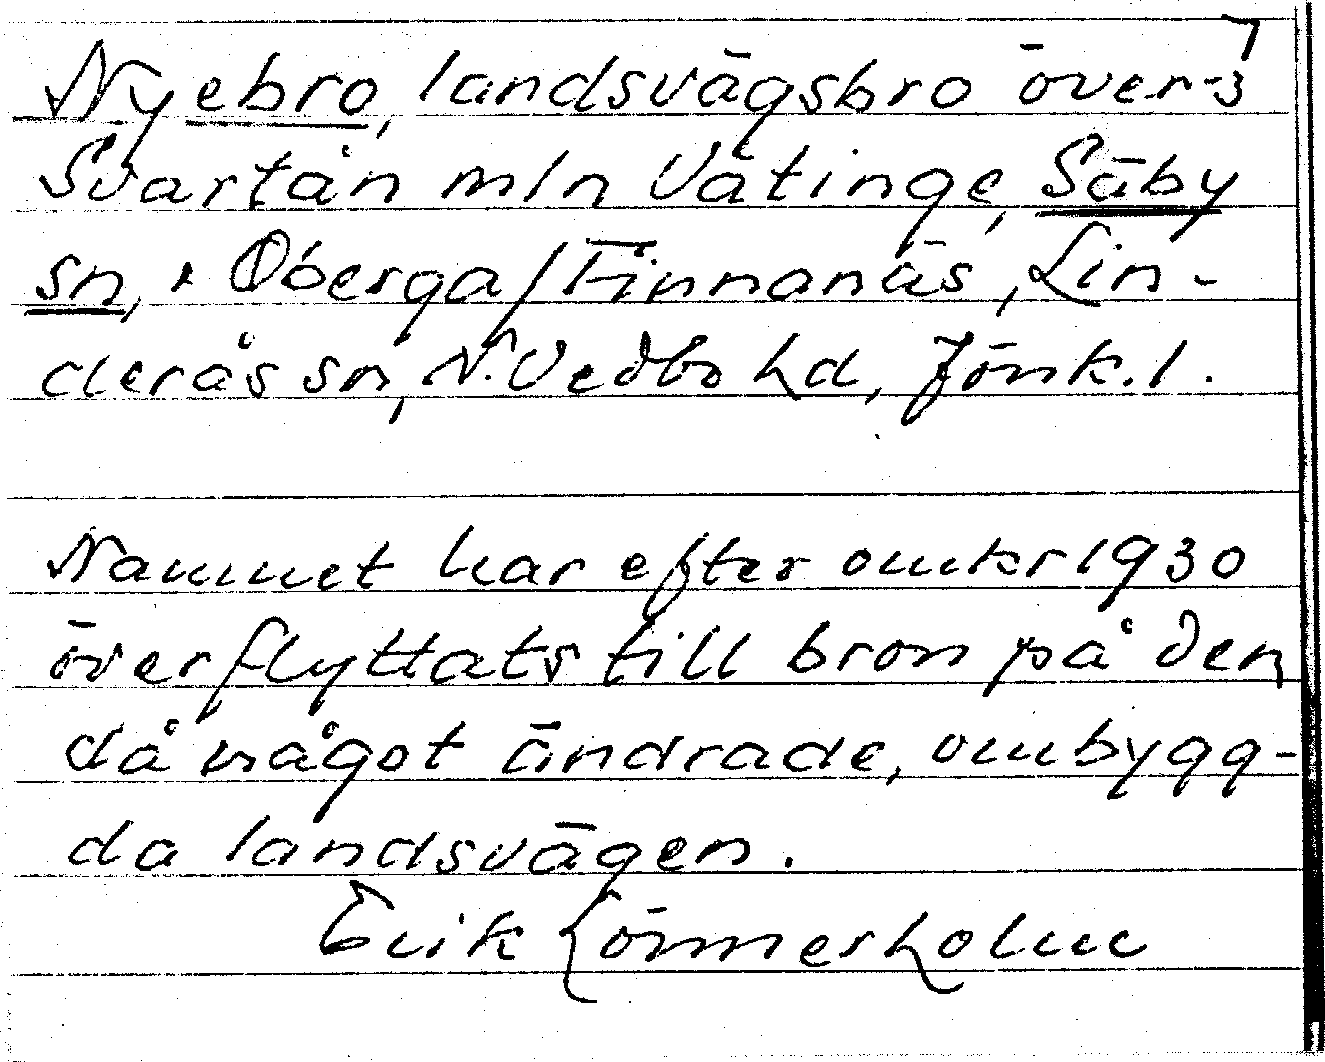 Nyebro, landsvägsbro över
Svartån mln Våtinge, Säby
sn, Oberga/Finnanäs, Lin-
derås sn, N. Vedbo hd, Jönk. l.
Namnet har efter omkr 1930
överflyttats till bron på den
då något ändrade, ombygg-
da landsvägen.
Erik Lönnerholm